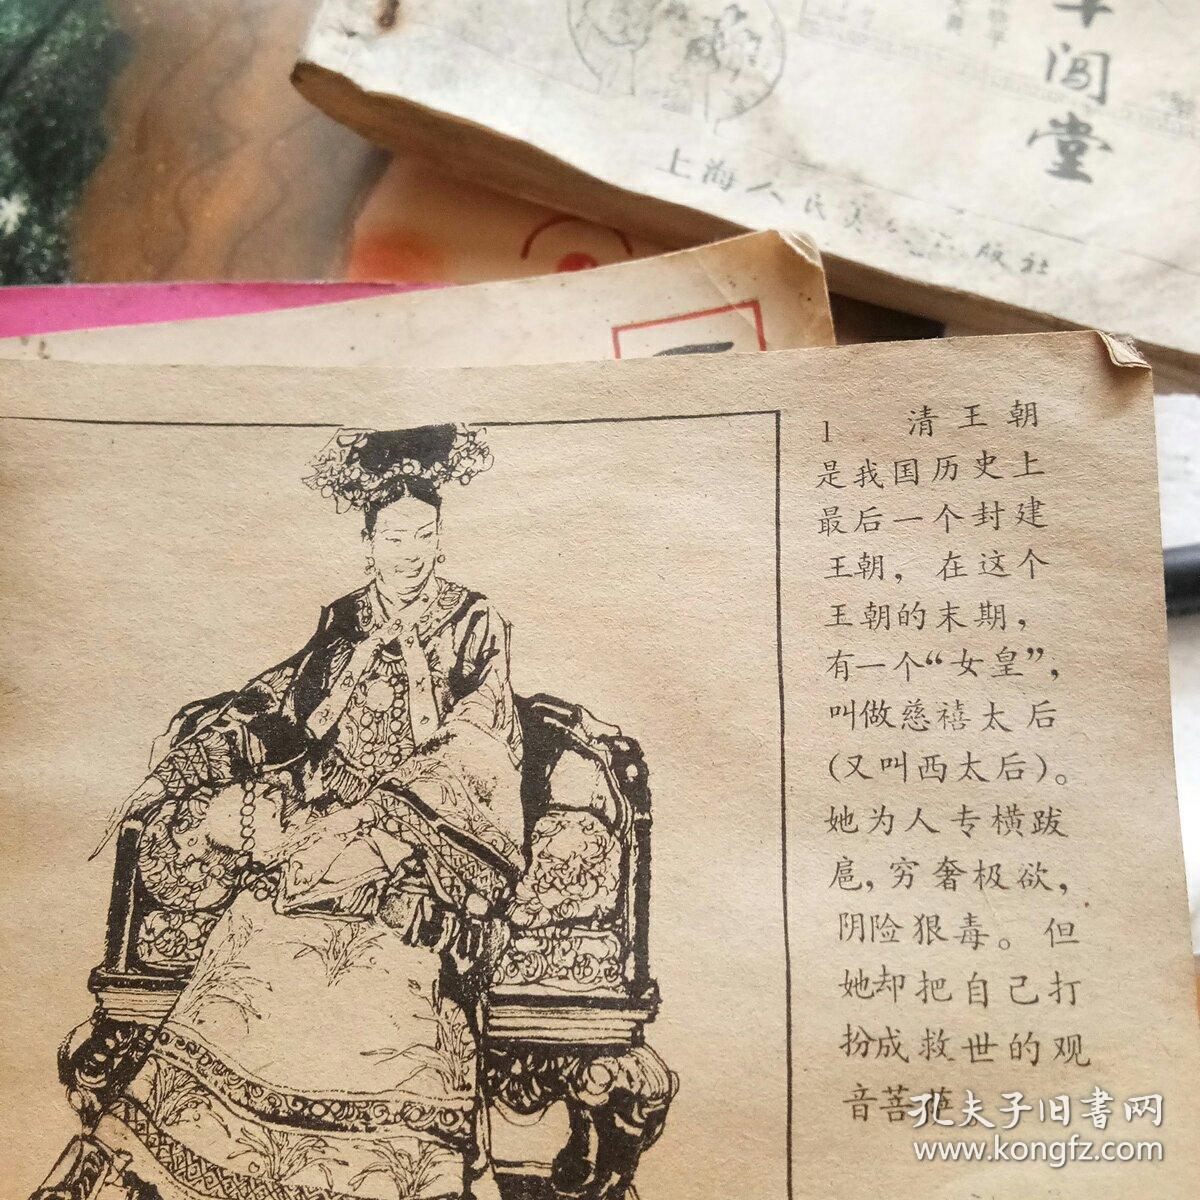 闯堂
上海人民美 出版社
1 清王朝
是我国历史上
最后一个封建
王朝，在这个
王朝的末期，
有一个“女皇”，
叫做慈禧太后
(又叫西太后)。
她为人专横跋
扈，穷奢极欲，
阴险狠毒。但
她却把自己打
扮成救世的观
音菩萨
孔夫子旧书网
www.kongfz.com